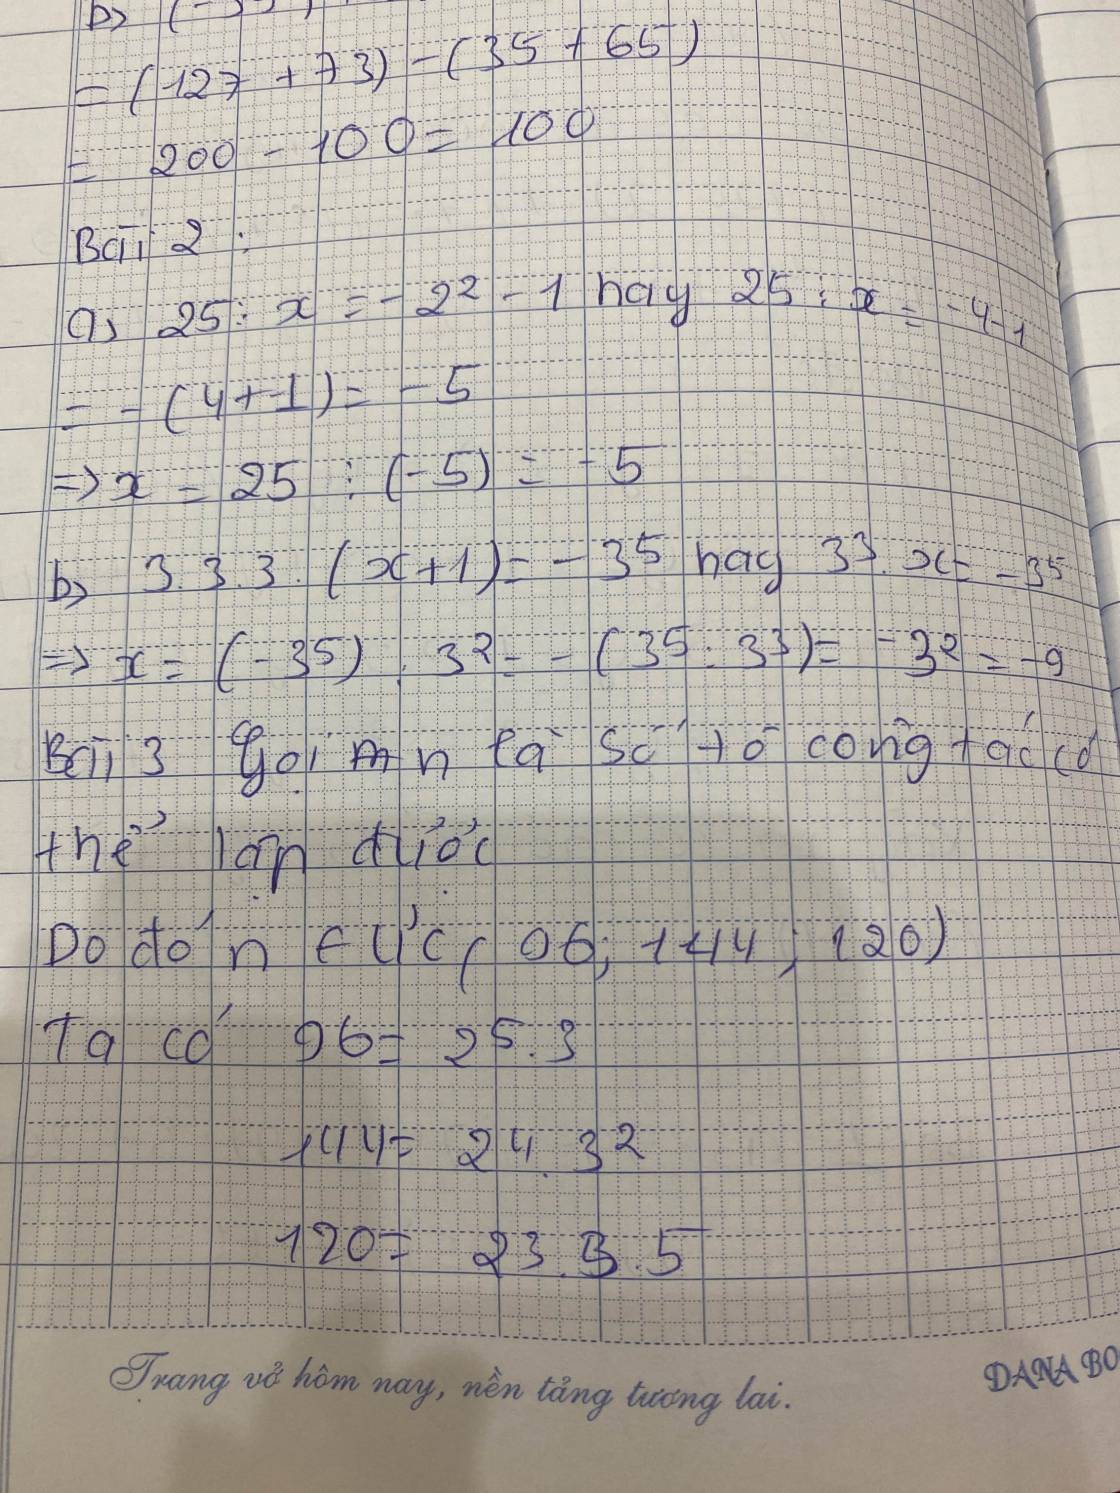 b) (-35)
= (127 + 73) - (35 + 65)
= 200 - 100 = 100
Bài 2 :
a) 25 : x = -2² - 1 hay 25 : x = -4-1
= - (4+1) = -5
=> x = 25 : (-5) = -5
b) 3.3.3. (x+1) = -3⁵ hay 3³. x = -3⁵
=> x = (-3⁵) : 3² = - (3⁵ : 3³) = -3² = -9
Bài 3 Gọi n là số tổ công tác có
thể lập được
Do đó n € ƯC ( 96; 144 ; 120)
Ta có 96 = 2⁵.3
144 = 2⁴.3²
120 = 2³.3.5
Trang vở hôm nay, nền tảng tương lai.
DANA BO